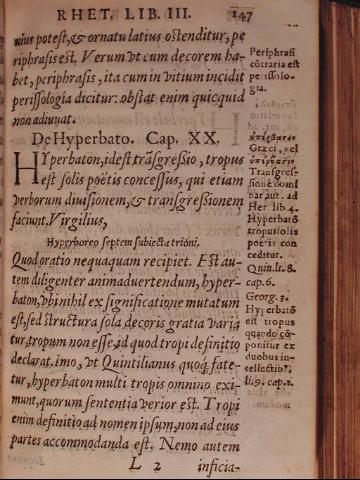 RHET. LIB. III. 147
nius potest, & ornatu latius ostenditur, pe
riphrasis est. Verum vt cum decorem ha-
bet, periphrasis, ita cum in vitium incidit
perissologia dicitur: obstat enim quicquid
non adiuuat.
De Hyperbato. Cap. XX.
HYperbaton, id est trãsgressio, tropus
est solis poëtis concessus, qui etiam
verborum diuisionem, & transgressionem
faciunt. Virgilius,
Hyperboreo septem subiecta trioni.
Quod oratio nequaquam recipiet. Est au-
tem diligenter animaduertendum, hyper-
baton, vbi nihil ex significatione mutatum
est, sed structura sola decoris gratia varia
tur, tropum non esse, id quod tropi definitio
declarat. Imo, vt Quintilianus quoq́ fate-
tur, hyperbaton multi tropis omnino exi-
munt, quorum sententia verior est. Tropi
enim definitio ad nomen ipsum, non ad eius
partes accommodanda est. Nemo autem
L 2 inficia-
Periphrasi
cõtraria est
perissolo-
gia.
ὑπέρβατον
Græci, vel
ὑπέρβασιν
Transgres-
sione nomi
nar aut. ad
Her lib. 4.
Hyperbatõ
tropus solis
poetis con
ceditur.
Quin. li. 8.
cap. 6.
Georg. 3.
Hyperbatõ
est tropus
quando cõ-
ponitur ex
duobus in-
tellectib.
li. 9. cap. 1.